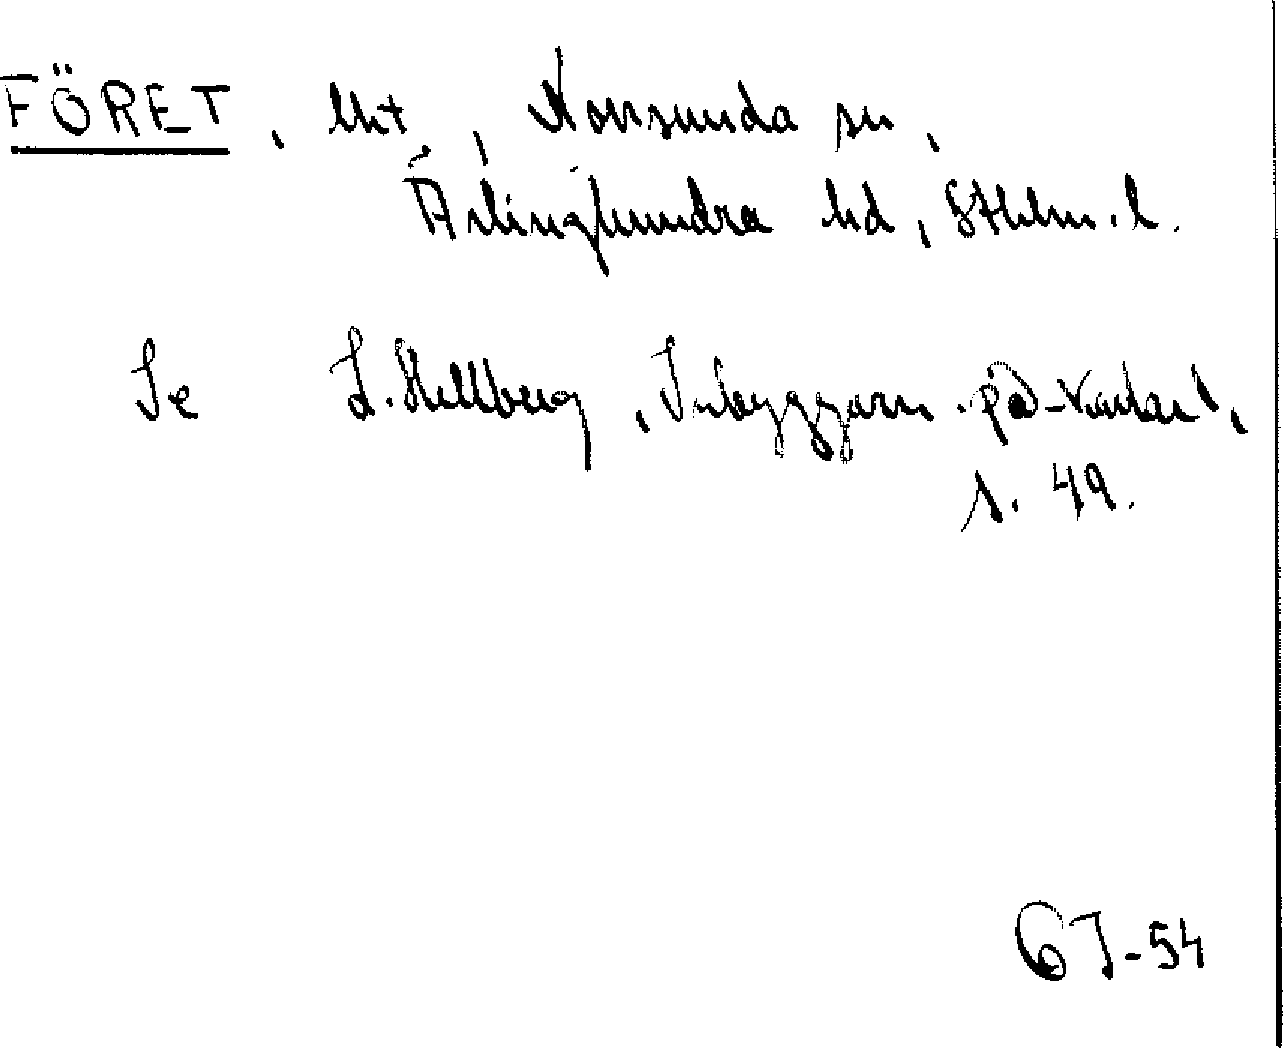 FÖRET, Unt, Norrsunda sn,
Ärlinghundra hd, Sthlms. l.
Se L. Hellberg, Inbyggarn. på -karlar,
s. 49.
67-54